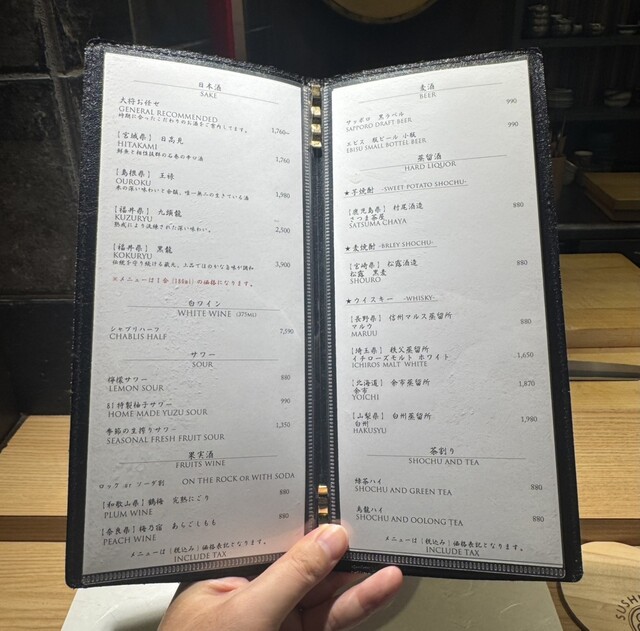 日本酒
SAKE
大将お任せ
GENERAL RECOMMENDED
時期に合ったこだわりのお酒をご案内してます。 1,760~
【宮城県】 日高見
HITAKAMI
鮮魚と相性抜群の石巻の辛口酒 1,760
【島根県】 王祿
OUROKU
米の深い味わいと余韻、唯一無二の生きている酒 1,980
【福井県】 九頭龍
KUZURYU
熟成により洗練された深い味わい。 2,500
【福井県】 黒龍
KOKURYU
伝統を守り続ける蔵元。上品でほのかな旨味が調和 3,900
※メニューは1合(180ml)の価格になります。
白ワイン
WHITE WINE (375ML)
シャブリハーフ
CHABLIS HALF 7,590
サワー
SOUR
檸檬サワー
LEMON SOUR 880
61特製柚子サワー
HOME MADE YUZU SOUR 990
季節の生搾りサワー
SEASONAL FRESH FRUIT SOUR 1,350
果実酒
FRUITS WINE
ロック or ソーダ割 ON THE ROCK OR WITH SODA
【和歌山県】鶴梅 完熟にごり
PLUM WINE 880
【奈良県】梅乃宿 あらごしもも
PEACH WINE 880
メニューは(税込み)価格表記となります。
INCLUDE TAX
麦酒
BEER
サッポロ 黒ラベル 990
SAPPORO DRAFT BEER
エビス 瓶ビール 小瓶 990
EBISU SMALL BOTTEL BEER
蒸留酒
HARD LIQUOR
★芋焼酎 -SWEET POTATO SHOCHU-
【鹿児島県】 村尾酒造 880
さつま茶屋
SATSUMA CHAYA
★麦焼酎 -BRLEY SHOCHU-
【宮崎県】 松露酒造 880
松露 黒麦
SHOURO
★ウイスキー -WHISKY-
【長野県】 信州マルス蒸留所 880
マルウ
MARUU
【埼玉県】 秩父蒸留所
イチローズモルト ホワイト 1,650
ICHIROS MALT WHITE
【北海道】 余市蒸留所 1,870
余市
YOICHI
【山梨県】 白州蒸留所 1,980
白州
HAKUSYU
茶割り
SHOCHU AND TEA
緑茶ハイ 880
SHOCHU AND GREEN TEA
烏龍ハイ
SHOCHU AND OOLONG TEA 880
メニューは(税込み)価格表記となります。
INCLUDE TAX
SUSHI